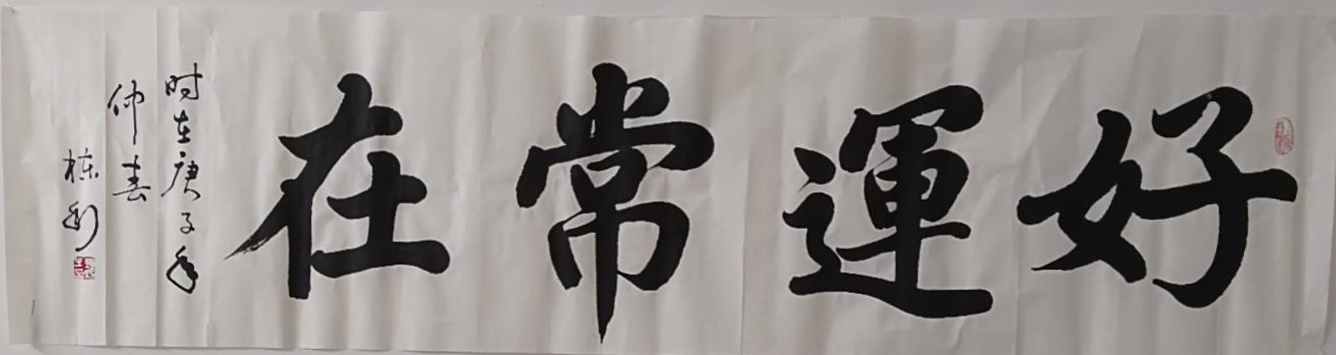 好運常在
时在庚子年
仲春
栋利